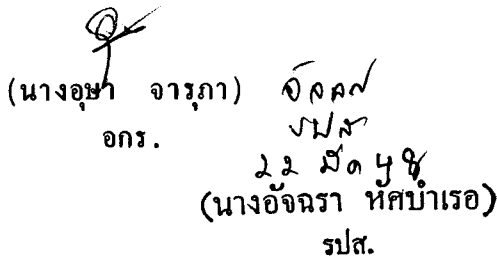 (นางอุษา จารุภา)
อกร.
รปส
22 มีค 48
(นางอัจฉรา หัศบำเรอ)
รปส.